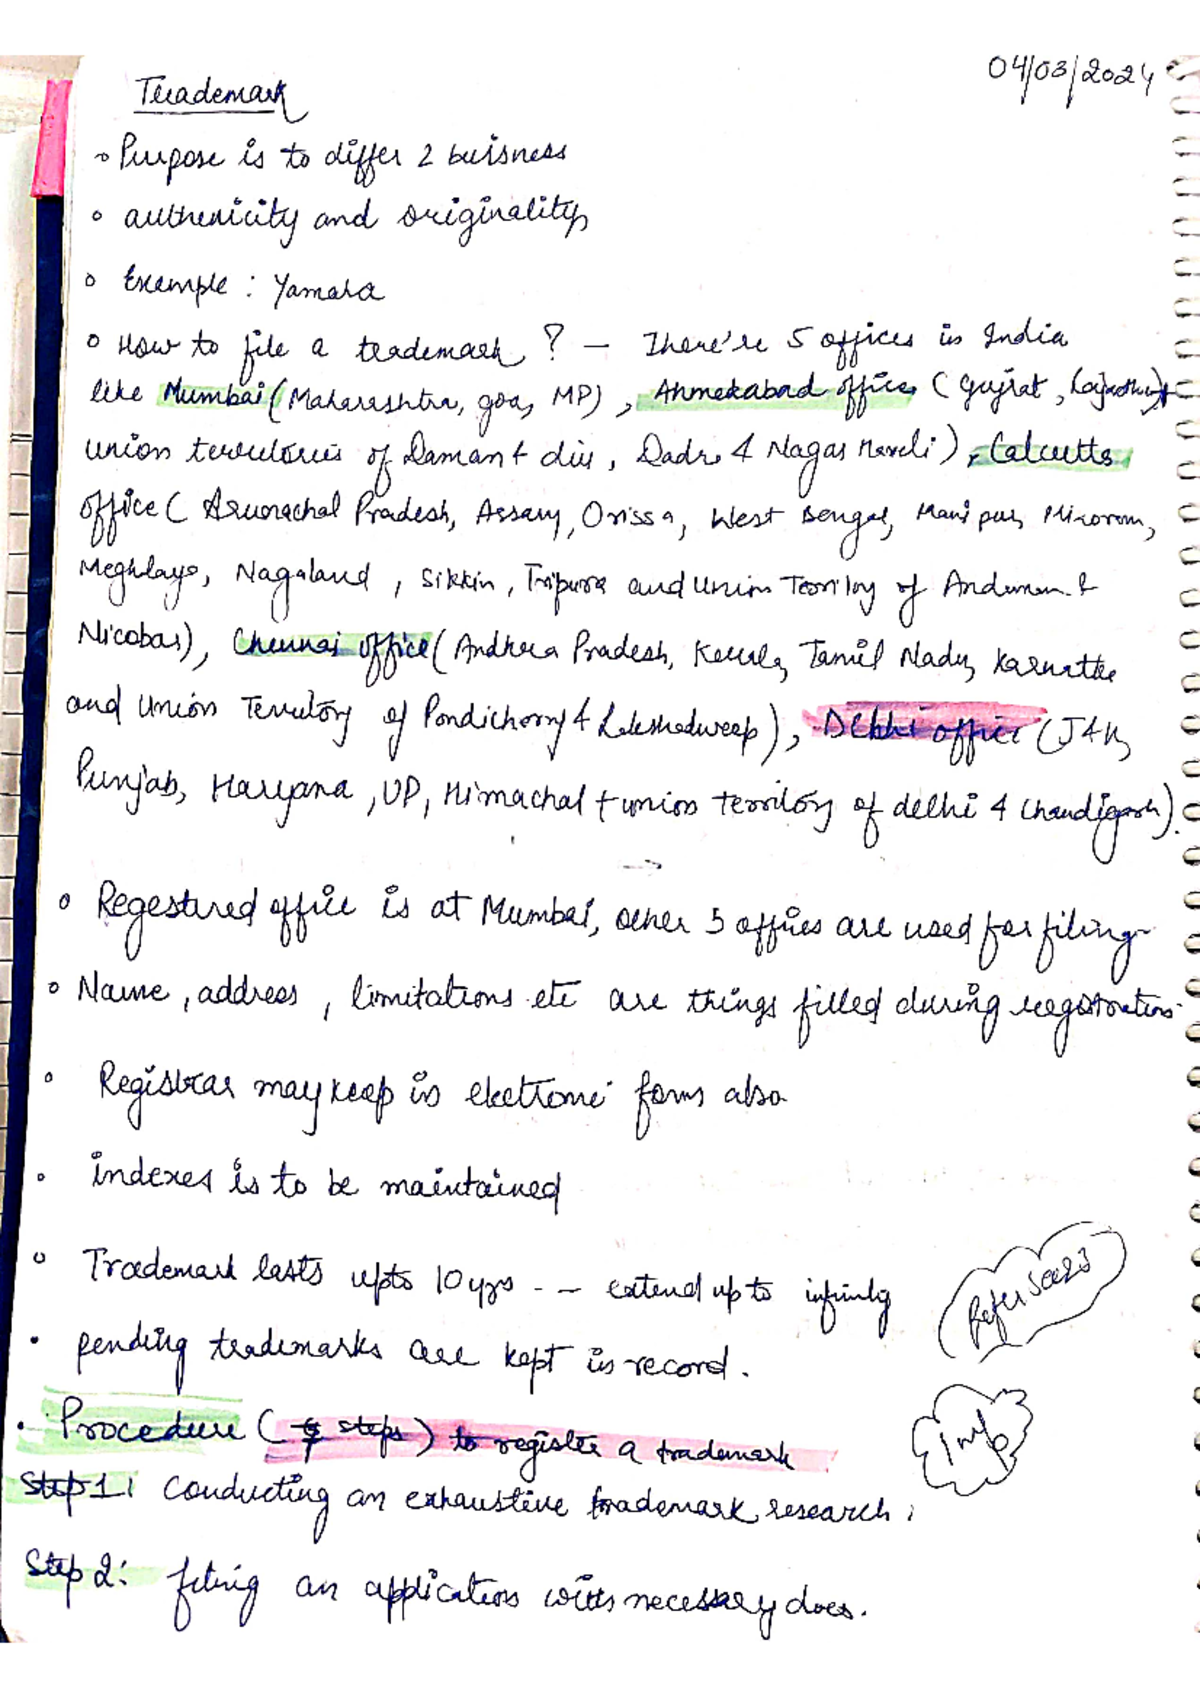 04/03/2024
Trademark
Purpose is to differ 2 buisness
authenicity and originality
Exemple : Yamaha
How to file a trademark ? – There're 5 offices in India
like Mumbai (Maharashtra, goa, MP), Ahmedabad office (Gujrat, Rajasthan +
union terrutories of Daman + diu, Dadra & Nagar Haveli), Calcutta
office ( Arunachal Pradesh, Assam, Orissa, West Bengal, Manipur, Mizoram,
Meghlaya, Nagaland, Sikkin, Tripura and Union Territoy of Andaman &
Nicobar), Chennai office (Andhra Pradesh, Kerala, Tamil Nadu, Karnatka
and Union Territory of Pondicherry & Lakshadweep), Delhi office (J&K,
Punjab, Haryana, UP, Himachal + union territory of delhi & Chandigarh).
Regestured office is at Mumbai, other 5 offices are used for filing
Name, address, limitations etc are things filled during registration
Registrar may keep in electronic form also
indexes is to be maintained
Trademark lasts upto 10 yrs - – extend up to infinity
Refer
pending trademarks are kept in record.
Procedure ( steps) to register a trademark
Imp
Step 1: Conducting an exhaustive trademark research.
Step 2: filing an application with necessary docs.